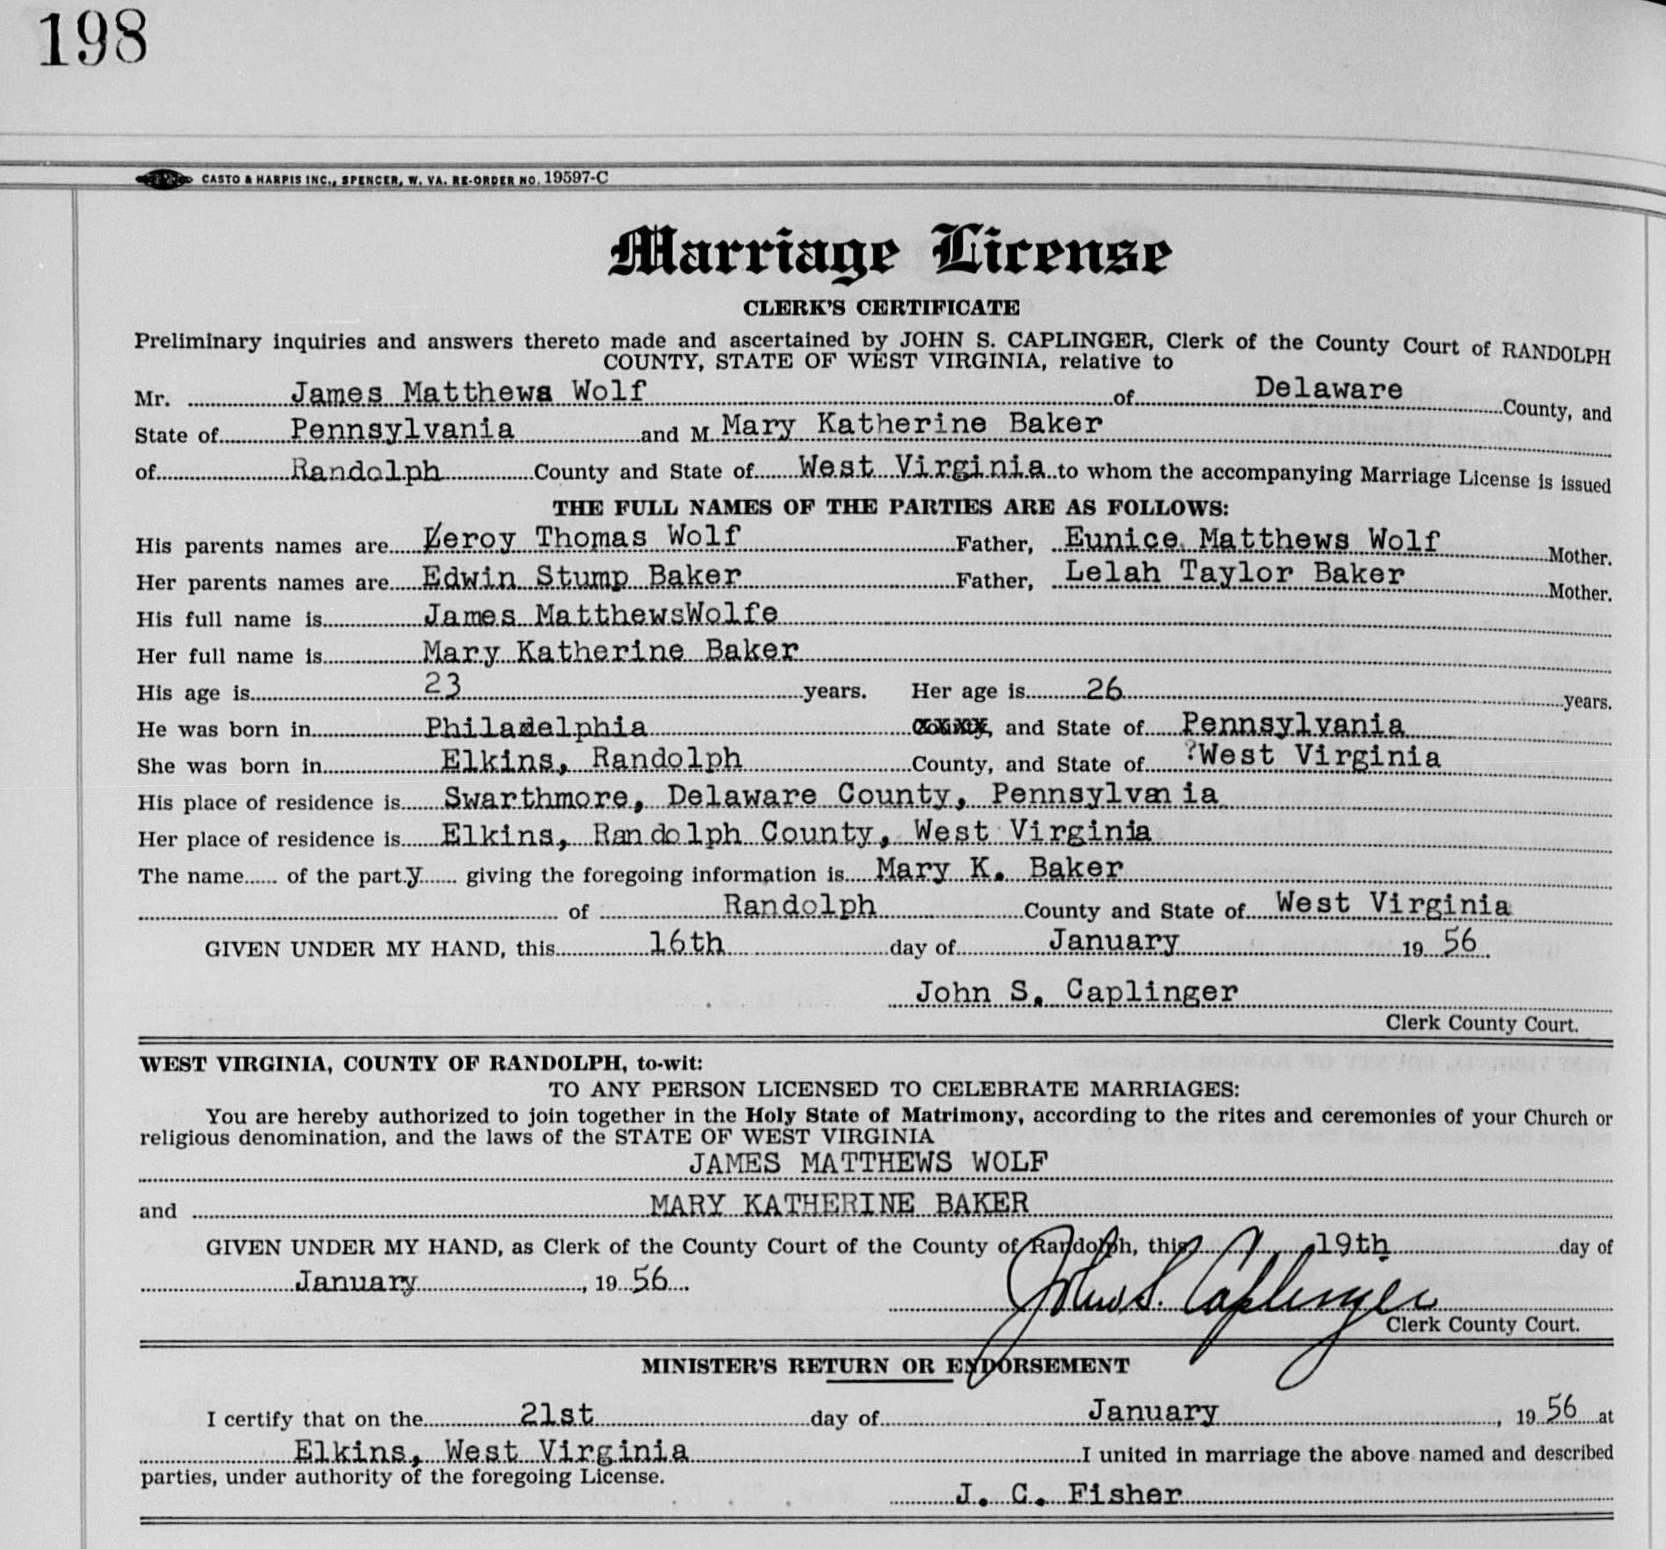 198
CASTO & HARRIS INC., SPENCER, W. VA. RE-ORDER NO. 19597-C
Marriage License
CLERK'S CERTIFICATE
Preliminary inquiries and answers thereto made and ascertained by JOHN S. CAPLINGER, Clerk of the County Court of RANDOLPH
COUNTY, STATE OF WEST VIRGINIA, relative to
Mr. James Matthews Wolf of Delaware County, and
State of Pennsylvania and M Mary Katherine Baker
of Randolph County and State of West Virginia to whom the accompanying Marriage License is issued
THE FULL NAMES OF THE PARTIES ARE AS FOLLOWS:
His parents names are Leroy Thomas Wolf Father, Eunice Matthews Wolf Mother.
Her parents names are Edwin Stump Baker Father, Lelah Taylor Baker Mother.
His full name is James MatthewsWolfe
Her full name is Mary Katherine Baker
His age is 23 years. Her age is 26 years.
He was born in Philadelphia County, and State of Pennsylvania
She was born in Elkins, Randolph County, and State of ?West Virginia
His place of residence is Swarthmore, Delaware County, Pennsylvania
Her place of residence is Elkins, Randolph County, West Virginia
The name of the party giving the foregoing information is Mary K. Baker
of Randolph County and State of West Virginia
GIVEN UNDER MY HAND, this 16th day of January 19 56
John S. Caplinger
Clerk County Court.
WEST VIRGINIA, COUNTY OF RANDOLPH, to-wit:
TO ANY PERSON LICENSED TO CELEBRATE MARRIAGES:
You are hereby authorized to join together in the Holy State of Matrimony, according to the rites and ceremonies of your Church or
religious denomination, and the laws of the STATE OF WEST VIRGINIA
JAMES MATTHEWS WOLF
and MARY KATHERINE BAKER
GIVEN UNDER MY HAND, as Clerk of the County Court of the County of Randolph, this 19th day of
January, 19 56.
John S. Caplinger
Clerk County Court.
MINISTER'S RETURN OR ENDORSEMENT
I certify that on the 21st day of January, 19 56 at
Elkins, West Virginia I united in marriage the above named and described
parties, under authority of the foregoing License.
J. C. Fisher